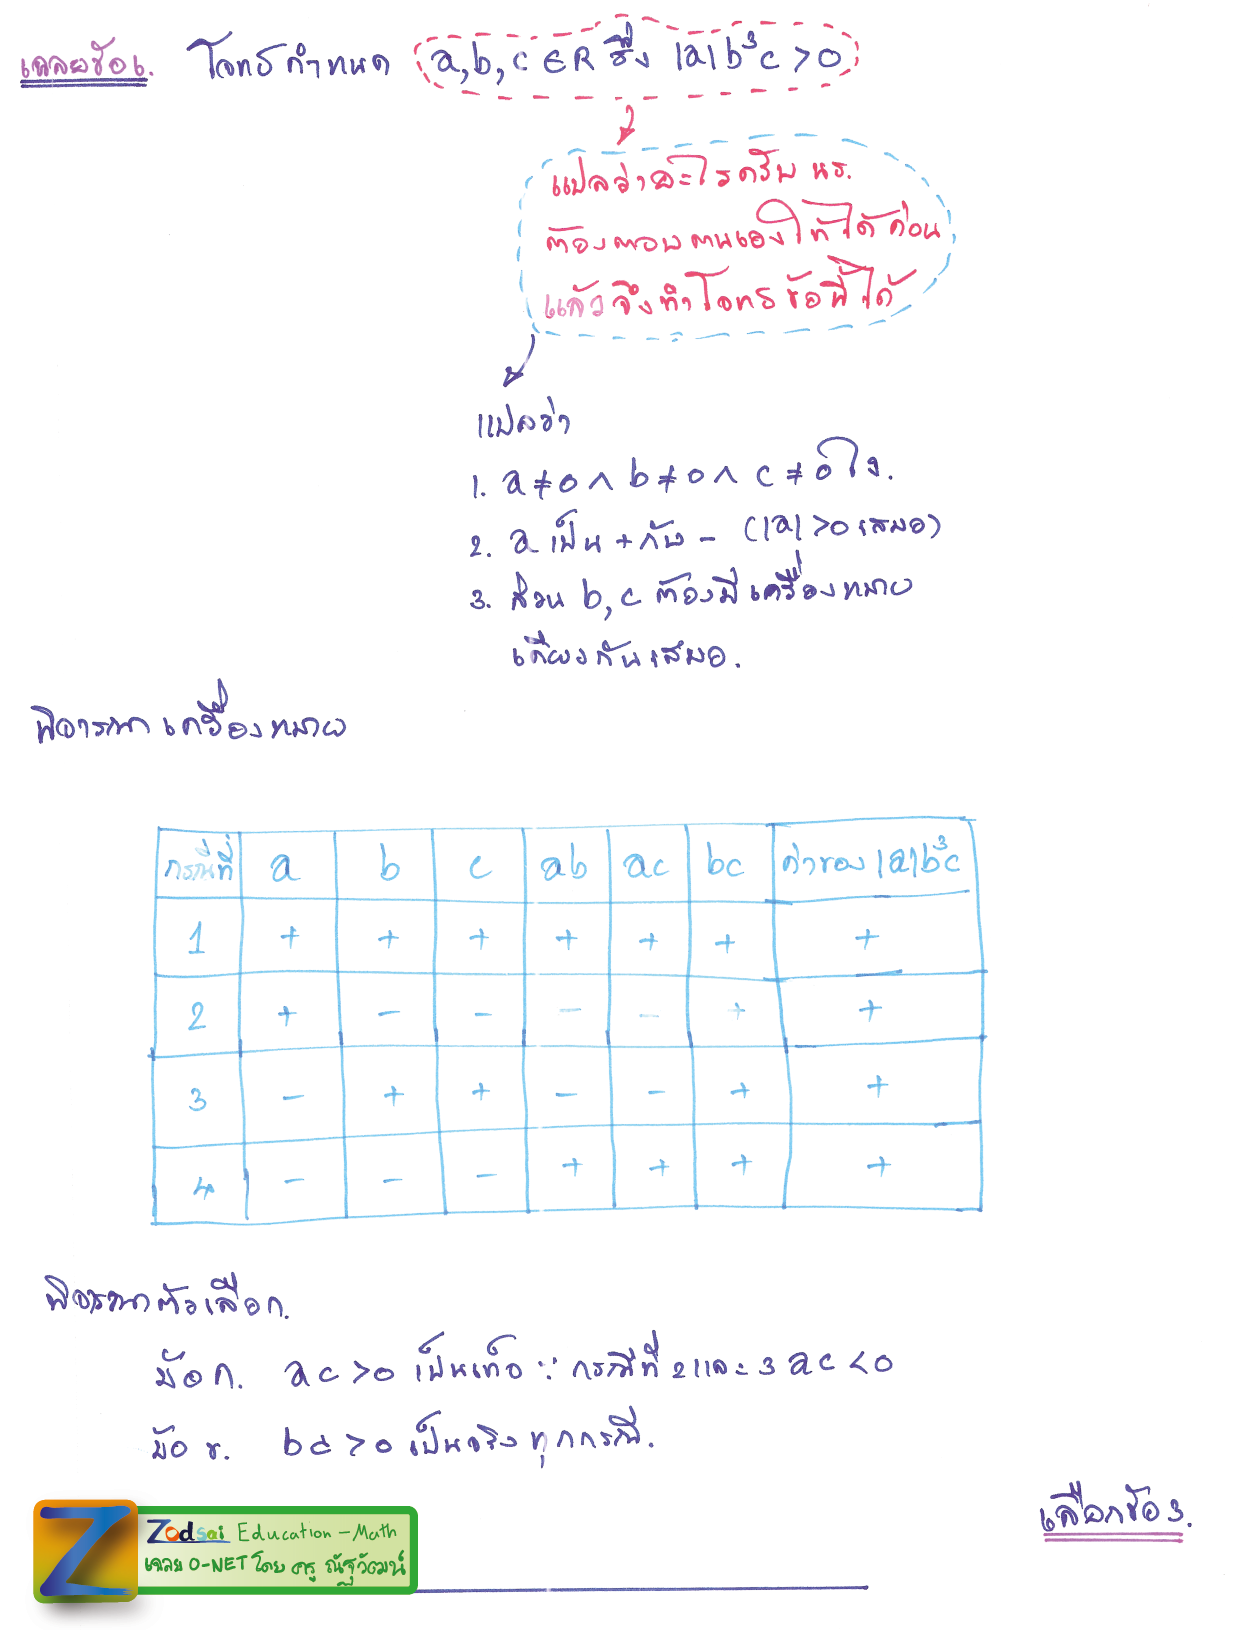 เฉลยข้อ 6. โจทย์กำหนด a,b,c ∈ R ซึ่ง |a|b³c > 0
แปลว่าอะไรครับ นร.
ต้องตอบตนเองให้ได้ก่อน
แล้วจึงทำโจทย์ข้อนี้ได้
แปลว่า
1. a ≠ 0 ∧ b ≠ 0 ∧ c ≠ 0
2. a เป็น + กับ - (|a| > 0 เสมอ)
3. ส่วน b, c ต้องมีเครื่องหมาย
เดียวกันเสมอ.
พิจารณาเครื่องหมาย
กรณีที่ a b c ab ac bc ค่าของ |a|b³c
1 + + + + + + +
2 + - - - - + +
3 - + + - - + +
4 - - - + + + +
พิจารณาตัวเลือก.
ข้อ ก. ac > 0 เป็นเท็จ ∵ กรณีที่ 2 และ 3 ac < 0
ข้อ ข. bc > 0 เป็นจริงทุกกรณี.
เลือกข้อ 3.
Z
Zodsai Education - Math
เฉลย O-NET โดย ครู ณัฐวัฒน์